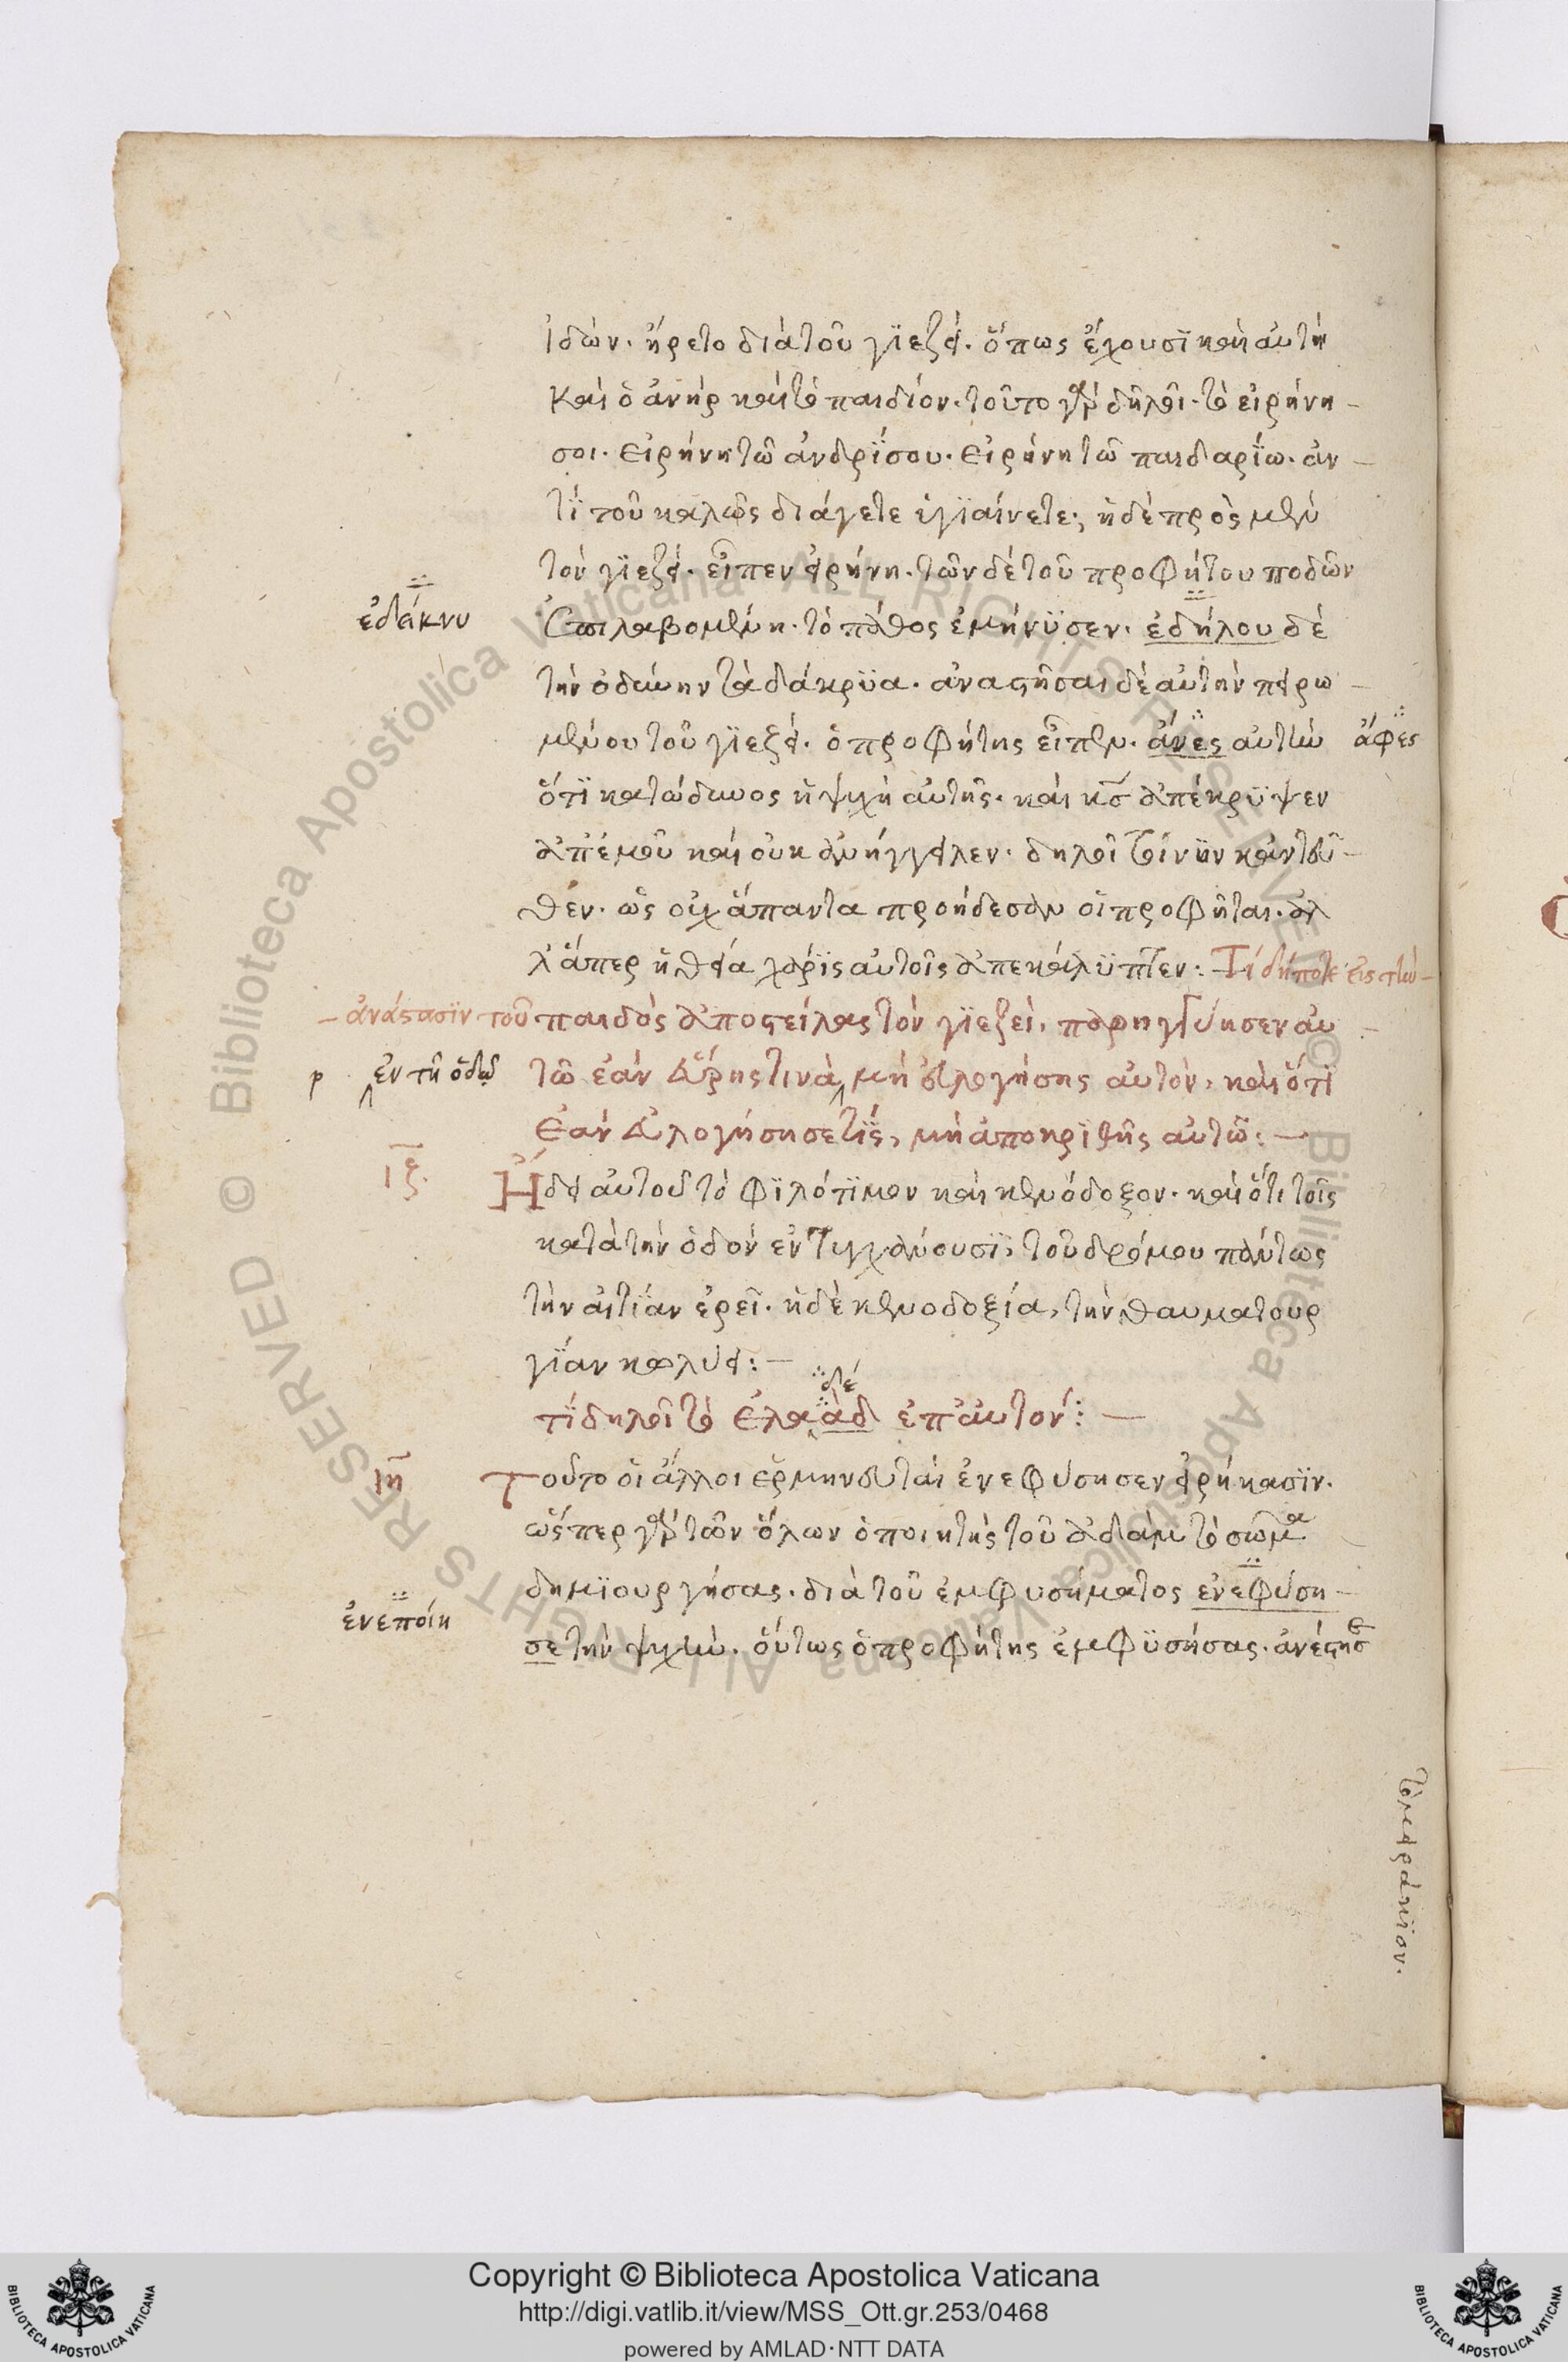 ἰδὼν· ἤρετο διὰ τοῦ γϊεζεί· ὅπως ἔχουσϊ καὶ αὐτὴ
καὶ ὁ ἀνὴρ καὶ τὸ παιδίον· τοῦτο γὰρ δηλοῖ· τὸ εἰρήνη
σοι· εἰρήνη τῶ ἀνδρΐ σου· εἰρήνη τῶ παιδαρΐω· ἀν
τΐ τοῦ καλῶς διάγετε ὑγϊαίνετε; ἡ δὲ πρὸς μὲν
τὸν γϊεζεί· εἶπεν εἰρήνη· τῶν δὲ τοῦ προφήτου ποδῶν
ἐδάκνυ
ἐπιλαβομένη· τὸ πάθος ἐμήνϋσεν· ἐδήλου δὲ
τὴν ὀδύνην τὰ δάκρϋα· ἀναστῆσαι δὲ αὐτὴν πειρω
μένου τοῦ γϊεζεί· ὁ προφήτης εἶπεν· ἄνες αὐτὴν ἄφες
ὅτϊ κατώδυνος ἡ ψυχὴ αὐτῆς· καὶ κς ἀπέκρϋψεν
ἀπ' ἐμοῦ καὶ οὐκ ἀνήγγειλεν· δηλοῖ τοίνϋν κἀντεῦ
θεν· ὡς οὐχ ἅπαντα προήδεσαν οἱ προφῆται· ἀλ
λ' ἅπερ ἡ θεία χάρϊς αὐτοῖς ἀπεκάλϋπτεν: Τί δήποτε εἰς τὴν
ἀνάστασϊν τοῦ παιδὸς ἀποστείλας τὸν γϊεζεὶ, παρηγγύησεν αὐ
ρ ἐν τῆ ὁδῶ τῶ ἐὰν εὕρης τινὰ, μὴ εὐλογήσης αὐτὸν, καὶ ὅτϊ
ἐὰν εὐλογήση σέ τΐς, μὴ ἀποκρϊθῆς αὐτῶ: —
ιζ· Ἤδει αὐτοῦ τὸ φϊλότϊμον καὶ κενόδοξον· καὶ ὅτι τοῖς
κατὰ τὴν ὁδὸν ἐντυγχάνουσϊ, τοῦ δρόμου πάντως
τὴν αἰτΐαν ἐρεῖ· ἡ δὲ κενοδοξία, τὴν θαυματουρ
γΐαν κωλύει: —
δέ
τΐ δηλοῖ τὸ ἐλαὰδ ἐπ' αὐτόν: —
ιη Τοῦτο οἱ ἄλλοι ἑρμηνευταὶ ἐνεφύσησεν εἰρήκασϊν·
ὥσπερ γὰρ τῶν ὅλων ὁ ποιητὴς τοῦ ἀδὰμ τὸ σῶμα
δημϊουργήσας· διὰ τοῦ ἐμφυσήματος ἐνεφύση
ἐνεποίη
σε τὴν ψυχὴν· οὕτως ὁ προφήτης ἐμφϋσήσας· ἀνέστησε
τὸ μειράκϊον·
Copyright © Biblioteca Apostolica Vaticana
http://digi.vatlib.it/view/MSS_Ott.gr.253/0468
powered by AMLAD·NTT DATA